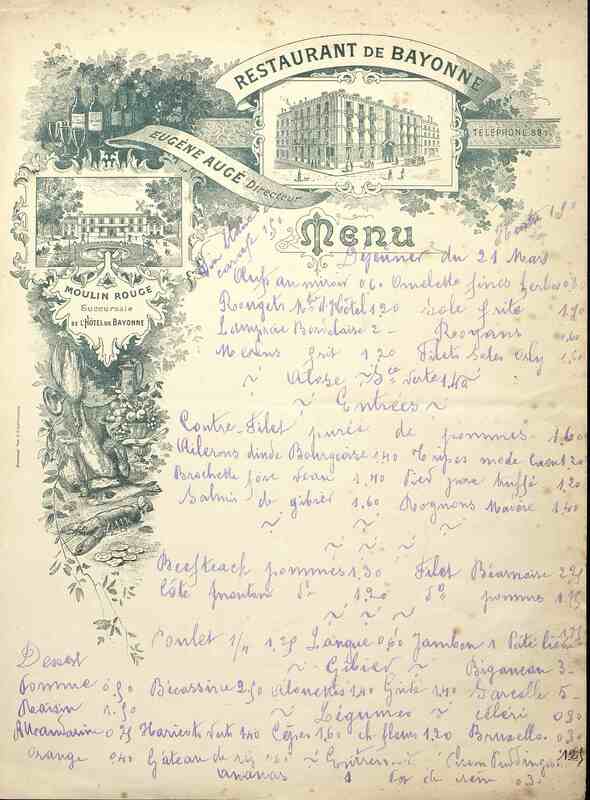 RESTAURANT DE BAYONNE
EUGÈNE AUGÉ Directeur
TÉLÉPHONE 88
MOULIN ROUGE
Succursale
DE L'HÔTEL DE BAYONNE
MENU
Déjeuner du 21 Mars
Œufs au miroir 0.60 Omelette fines herbes 0.80
Rougets Mtre d'Hôtel 1.20 Sole frite 1.50
Lamproie Bordelaise 2 - Royans 0.60
Merlans frit 1.20 Filets Soles Orly 1.50
~ Alose Sce verte 1.40 ~
~ Entrées ~
Contre-Filet purée de pommes 1.60
Ailerons dinde Bourgeoise 1.40 Tripes mode Caen 1.20
Brochette foie veau 1.40 Pied porc truffé 1.20
Salmis de gibier 1.60 Rognons Madère 1.40
Beefteack pommes 1.30 Filet Béarnaise 2.25
Côte mouton do 1.20 do pommes 1.75
Poulet 1/4 1.25 Langue 0.60 Jambon 1 Pâté lièvre 1.25
Dessert ~ Gibier ~ Biganeau 3 -
Pomme 0.50 Bécassine 2.50 Alouettes 1.40 Grive 1.40 Sarcelle 5 -
Raisin 1.50 ~ Légumes ~ Céleri 0.80
Mandarine 0.25 Haricots verts 1.40 Cèpes 1.60 ch. fleurs 1.20 Bruxelles 0.80
Orange 0.40 Gâteau de riz ~ Entremets ~ Plum Pudding 1.25
ananas 1 Pot de crème 0.30